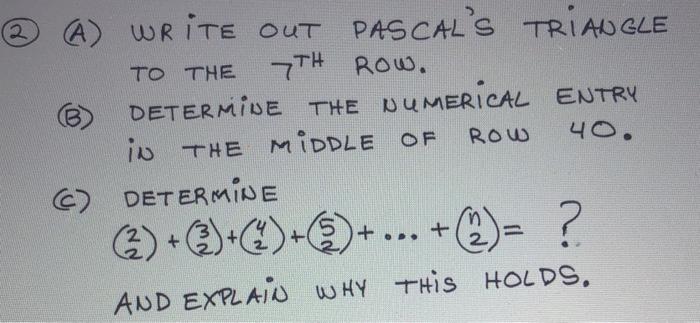 ② (A) WRITE OUT PASCAL'S TRIANGLE
TO THE 7TH ROW.
(B) DETERMINE THE NUMERICAL ENTRY
IN THE MIDDLE OF ROW 40.
(C) DETERMINE
(2 2) + (3 2) + (4 2) + (5 2) + ... + (n 2) = ?
AND EXPLAIN WHY THIS HOLDS.